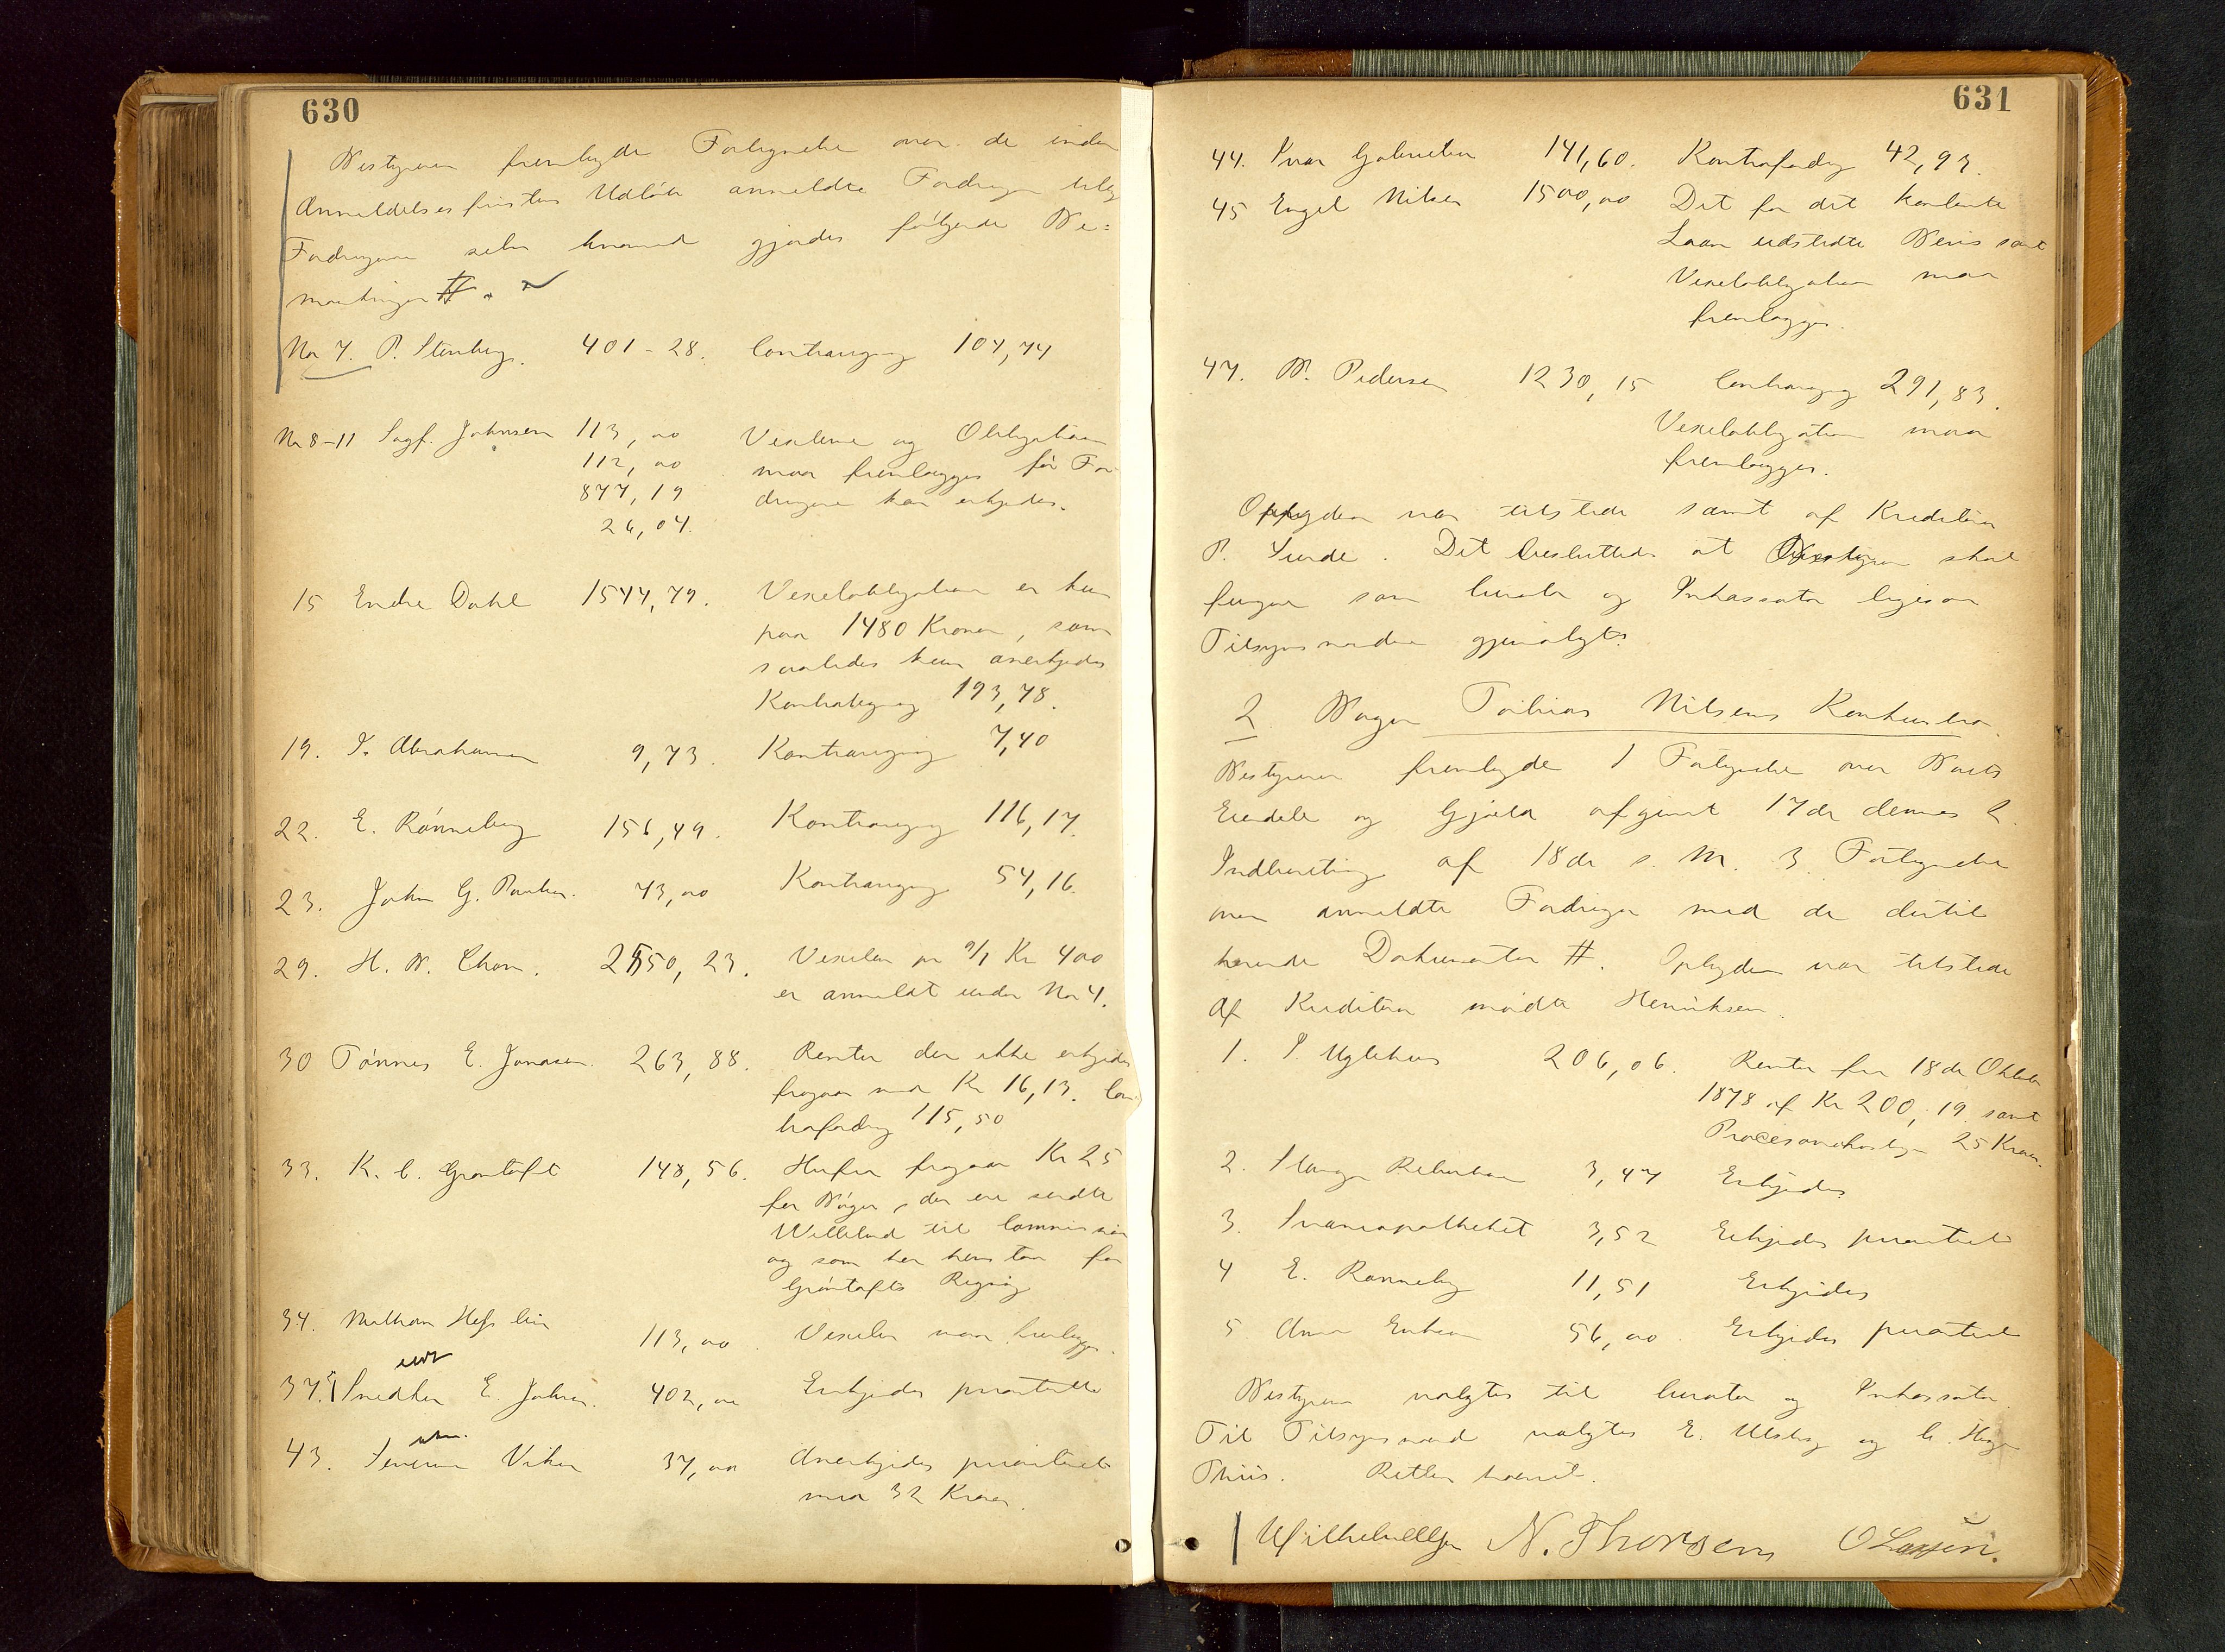 630
Bestyreren fremlagde Fortegnelse over de inden
Anmeldelsesfristens Udløb anmeldte Fordringer tillig
Fordringerne selv hvorved gjordes følgende Be=
mærkninger #.
No 7. P. Stenberg. 401-28. Contraregning 104,74
No 8-11 Sagf. Johnsen 113,00 Vexlerne og Obligationen
112,00 maa fremlægges før For
877,19 dringene kan erkjendes.
26,04.
15 Endre Dahl 1544,79. Vexelobligationen er kun
paa 1480 Kroner, som
saaledes kun anerkjendes
Kontraregning 193,78.
19. Abrahamsen 9,73. Kontraregning 7,40
22. E. Rønneberg 156,49. Kontraregning 116,17.
23. John G. 73,00 Kontraregning 54,16.
29. H. B. Thom. 2550,23. Vexelen pr Kr 400
er anmeldt under No 4.
30 Tønnes E. Jonasen. 263,88. Renter der ikke erkjendes
fragaar med Kr 16,13. Con
trafordring 115,50
33. K. C. Grøntoft 148,56. Herfra fragaar Kr 25
for Bøger, der ere sendte
til Commission
og som her henstaar for
Grøntofts Regning
34. 113,00. Vexelen maa fremlægges.
37. Snedker E. Johnsen. 402,00 Erkjendes prioriteret
43. Viken 37,00 Anerkjendes prioriteret
med 32 Kroner.
631
44. Ivar Gabrielsen 141,60. Kontrafordring 42,93.
45 Engel Nilsen 1500,00 Det for det kontante
Laan udstedte Bevis samt
Vexelobligation maa
fremlægges.
47. B. Pedersen 1230,15 Contraregning 291,83.
Vexelobligation maa
fremlægges.
Opbyderen var tilstede samt af Kreditorer
P. Sunde. Det besluttedes at Bestyreren skal
fungere som Curator og Inkassator ligesom
Tilsynsmændene gjenvalgtes.
2. Bager Tobias Nilsens Konkursbo.
Bestyreren fremlagde 1 Fortegnelse over Boets
Eiendele og Gjæld afgivet 17de dennes 2.
Indberetning af 18de s. M. 3. Fortegnelse
over anmeldte Fordringer med de dertil
hørende Dokumenter #. Opbyderen var tilstede
Af Kreditorer mødte Henriksen.
1. Uglehus 206,06. Renter fra 18de Oktober
1878 af Kr 200,19 samt
Procesomkostning 25 Kroner.
2. 3,47 Erkjendes
3. Svaneapotheket 3,52 Erkjendes prioriteret
4 E. Rønneberg 11,51 Erkjendes
5. 56,00. Erkjendes prioriteret
Bestyreren valgtes til Curator og Inkassator.
Til Tilsynsmænd valgtes E. og C.
Thiis. Retten hævet.
N. Thorsen O Larsen.